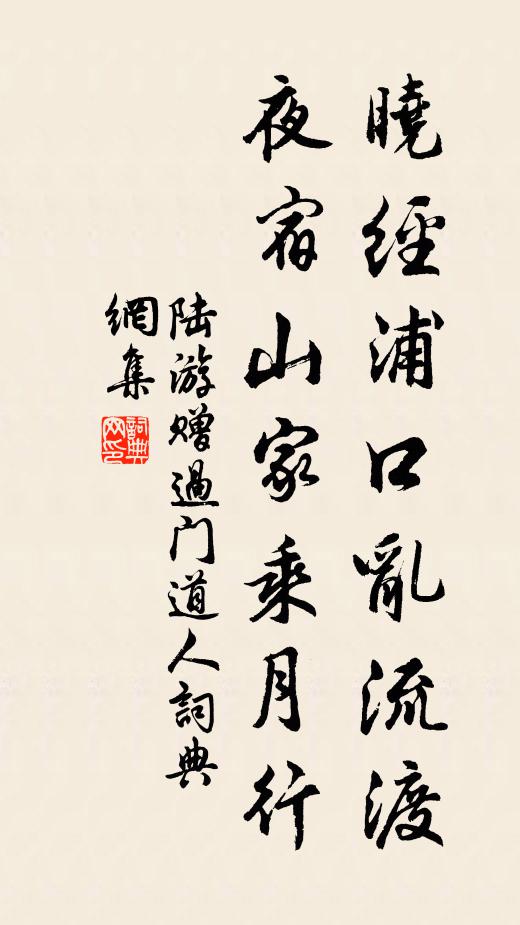 曉經浦口亂流渡
夜宿山家乘月行
陆游赠過门道人詞典
網集
詞典
网印